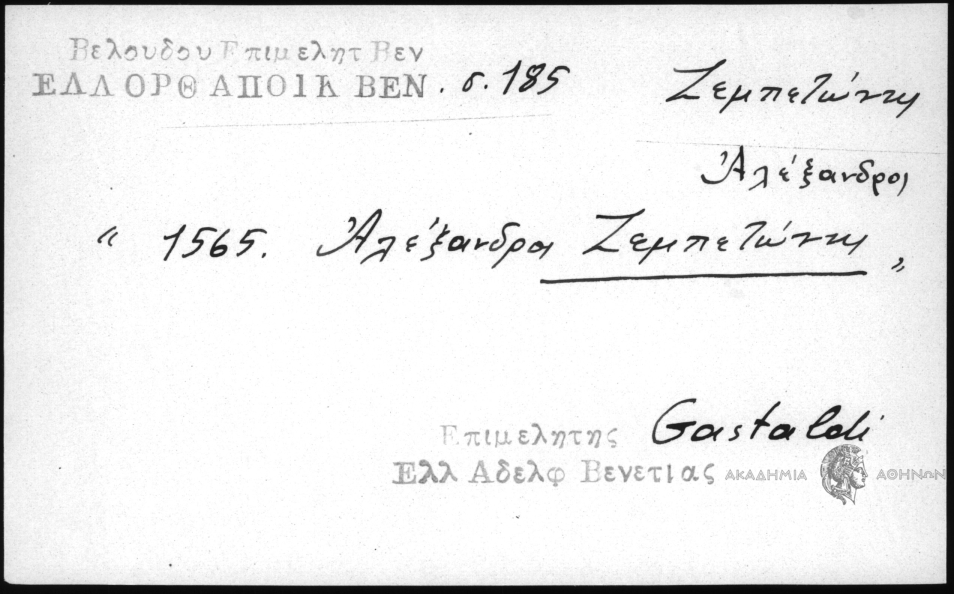 Βελουδου Επιμελητ Βεν
ΕΛΛ ΟΡΘ ΑΠΟΙΚ ΒΕΝ. σ. 185
Ζεμπετώνης
Ἀλέξανδρος
“ 1565. Ἀλέξανδρος Ζεμπετώνης „
Επιμελητης Gastaldi
Ελλ Αδελφ Βενετιας
ΑΚΑΔΗΜΙΑ ΑΘΗΝΩΝ